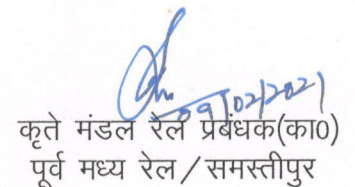 09/02/2021
कृते मंडल रेल प्रबंधक(का0)
पूर्व मध्य रेल/समस्तीपुर